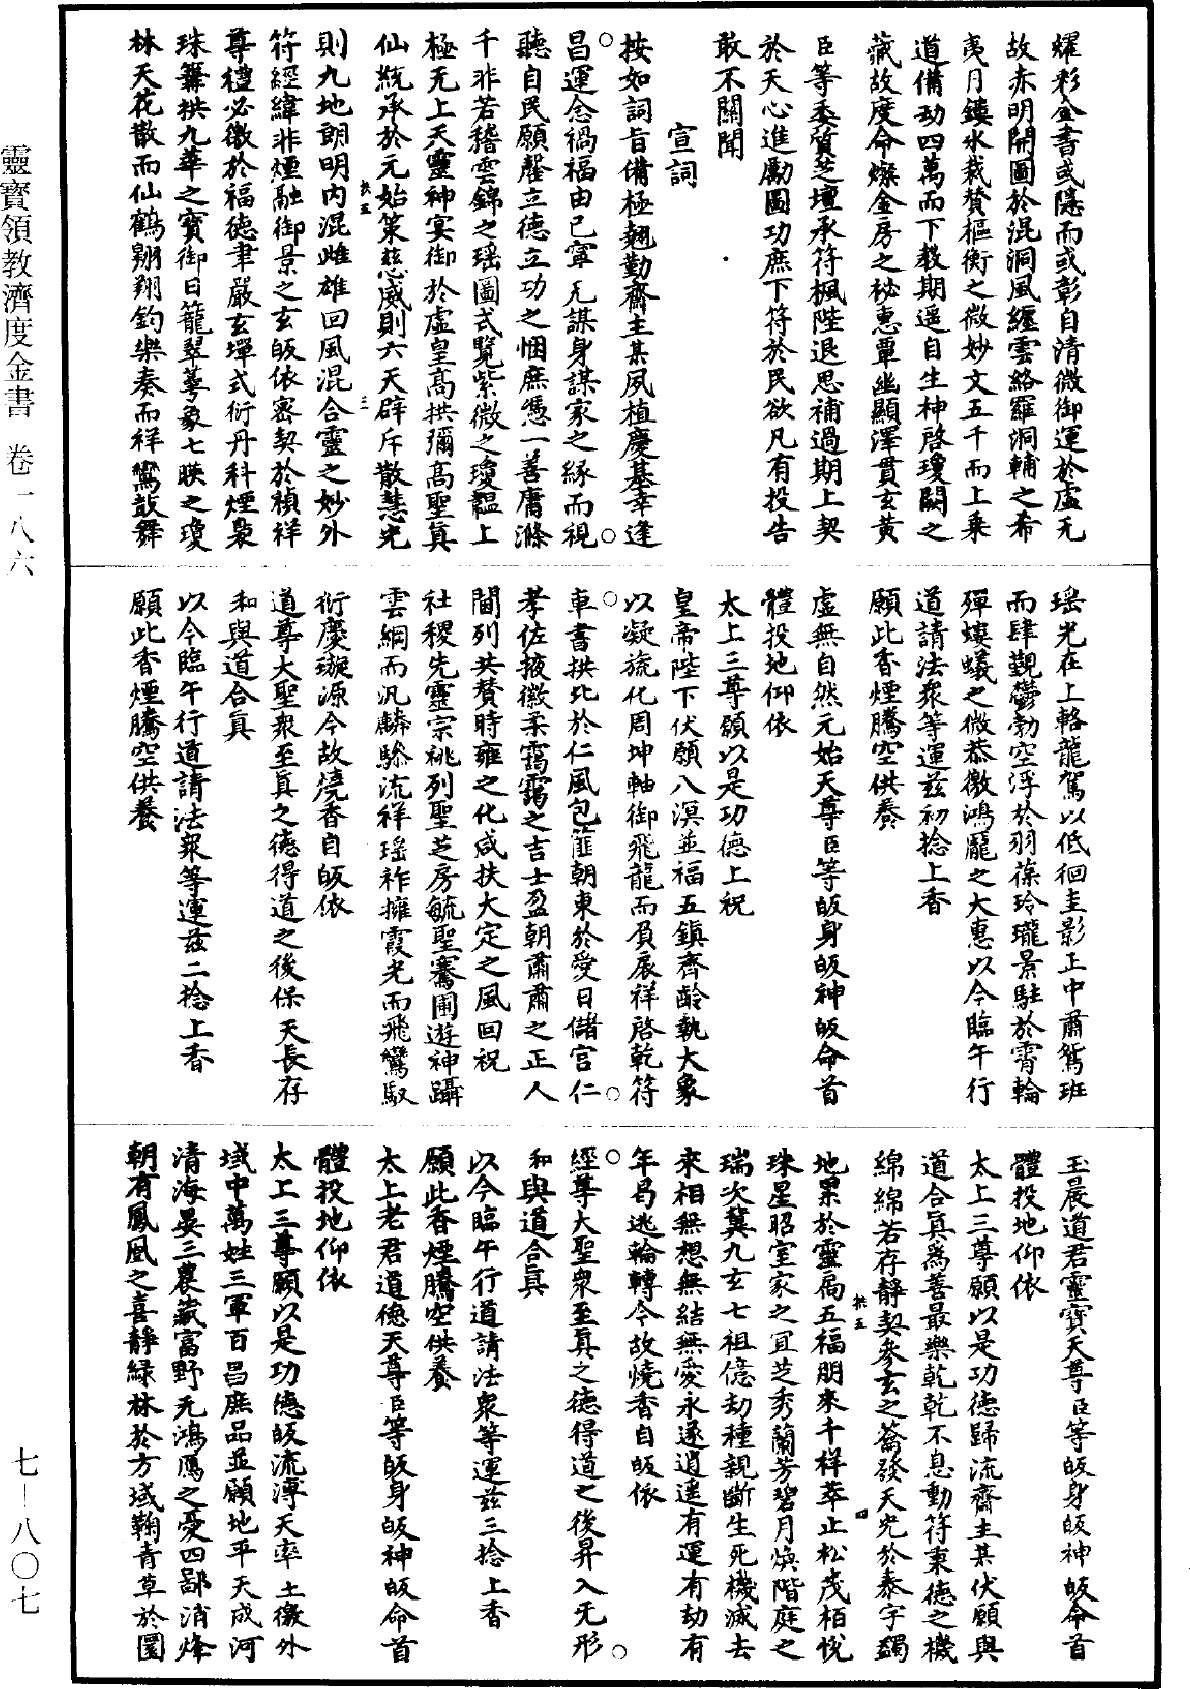 耀彩金書或隱而或彰自清微御運於虛无
故赤明開圖於混洞風纏雲絡羅洞輔之希
夷月鏤水裁贊樞衡之微妙文五千而上乘
道備劫四萬而下教期遥自生神啓瓊闕之
藏故度命燦金房之祕惠覃幽顯澤貫玄黃
臣等委質芝壇承符楓陛退思補過期上契
於天心進勵圖功庶下符於民欲凡有投告
敢不關聞
宣詞
按如詞旨備極翹勤齋主某夙植慶基幸逢
昌運念禍福由己寧无謀身謀家之緣而視
聽自民願罄立德立功之悃庶憑一善庸滌
千非若稽雲錦之瑶圖式覽紫微之瓊韞上
極无上天靈神宴御於虛皇高拱彌高聖真
仙統承於元始策慈威則六天辟斥散慧光
則九地朗明內混雌雄回風混合靈之妙外
符經緯非煙融御景之玄皈依密契於禎祥
尊禮必徵於福德聿嚴玄墠式衍丹科煙裊
珠籞拱九華之寶御日籠翠蕚象七暎之瓊
林天花散而仙鶴翺翔鈞樂奏而祥鸞鼓舞
瑶光在上輅龍駕以低徊圭影正中肅鴛班
而肆覲鬱勃空浮於羽葆玲瓏景駐於霄輪
殫螻蟻之微恭徼鴻龐之大惠以今臨午行
道請法衆等運玆初捻上香
願此香煙騰空供養
虛無自然元始天尊臣等皈身皈神皈命首
體投地仰依
太上三尊願以是功德上祝
皇帝陛下伏願八溟並福五鎮齊齡執大象
以凝旒化周坤軸御飛龍而負扆祥啓乾符
車書拱北於仁風包篚朝東於愛日儲宫仁
孝佐掖徽柔靄靄之吉士盈朝肅肅之正人
閫列共賛時雍之化咸扶大定之風回祝
社稷先靈宗祧列聖芝房毓聖騫圃遊神躡
雲綱而汎麟驂流祥瑶祚擁霞光而飛鸞馭
衍慶璇源今故燒香自皈依
道尊大聖衆至真之德得道之後保天長存
和與道合真
以今臨午行道請法衆等運玆二捻上香
願此香煙騰空供養
玉晨道君靈寶天尊臣等皈身皈神皈命首
體投地仰依
太上三尊願以是功德歸流齋主某伏願與
道合真爲善最樂乾乾不息動符秉德之機
綿綿若存靜契參玄之籥發天光於泰宇蠲
地累於靈扃五福朋來千祥萃止松茂栢悅
珠星昭室家之宜芝秀蘭芳碧月煥階庭之
瑞次冀九玄七祖億劫種親斷生死機滅去
來相無想無結無愛永遂逍遥有運有劫有
年曷逃輪轉今故燒香自皈依
經尊大聖衆至真之德得道之後昇入无形
和與道合真
以今臨午行道請法衆等運玆三捻上香
願此香煙騰空供養
太上老君道德天尊臣等皈身皈神皈命首
體投地仰依
太上三尊願以是功德皈流溥天率土徼外
域中萬姓三軍百昌庶品並願地平天成河
清海晏三農蔵富野无鴻鴈之憂四鄙消烽
朝有鳳凰之喜靜緑林於方域鞠青草於圜
拱五
三
拱五
四
靈寶領教濟度金書 卷一八六
七—八〇七